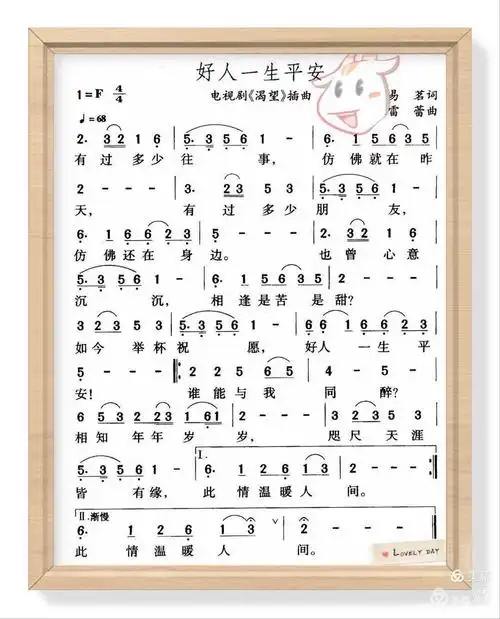 好人一生平安
1=F 4/4 电视剧《渴望》插曲 易 茗词
♩=68 雷 蕾曲
2· 3 2 1 6 | 5· 3 5 6 1 - | 6· 1 5 6 3 5 |
有 过 多 少 往 事, 仿 佛 就 在 昨
2 - - - | 3· 2 3 5 3 | 5· 3 5 6 1 - |
天, 有 过 多 少 朋 友,
6· 1 6 6 2 3 | 5 - - - | 2· 3 2 1 6 |
仿 佛 还 在 身 边。 也 曾 心 意
5· 3 5 6 1 - | 6· 1 5 6 3 5 | 2 - - - |
沉 沉, 相 逢 是 苦 是 甜?
3 2 3 5 3 | 5· 3 5 6 1 - | 6 6 1 6 6 2 3 |
如 今 举 杯 祝 愿, 好 人 一 生 平
5 - - - 𝄆 2 2 5 6 5 | 4 - 5 - |
安! 谁 能 与 我 同 醉?
6 5 3 2 2 3 | 1 6 1 2 - - | 3 2 3 5 3 |
相 知 年 年 岁 岁, 咫 尺 天 涯
5· 3 5 6 1 - | I. 6· 1 2 6 1 3 | 2 - - - 𝄇
皆 有 缘, 此 情 温 暖 人 间。
II.渐慢
6· 1 2 6 1 3 ∨ | 2 - - - 𝄇
此 情 温 暖 人 间。
LOVELY DAY